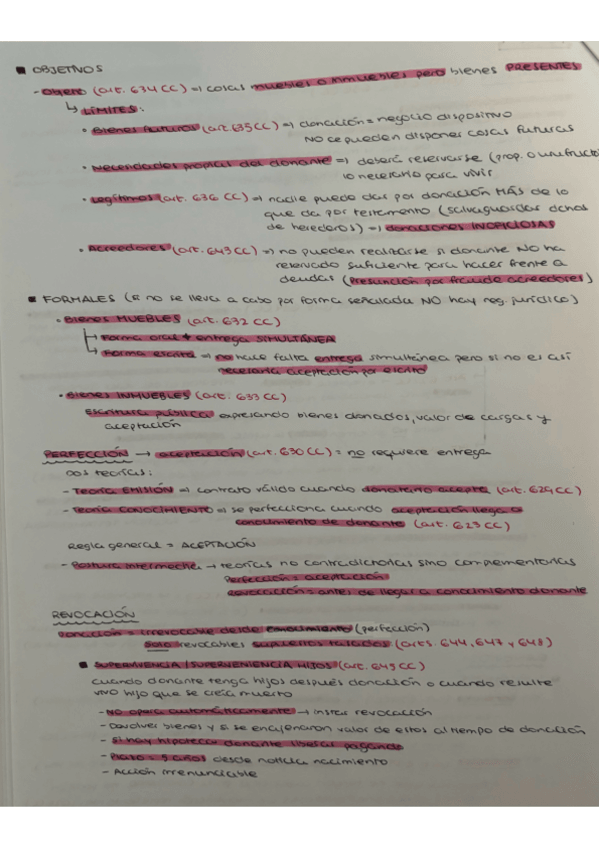 ■ OBJETIVOS
- Objeto (art. 634 CC) => cosas muebles o inmuebles pero bienes PRESENTES
↳ LÍMITES:
• Bienes futuros (art. 635 CC) => donación = negocio dispositivo
NO se pueden disponer cosas futuras
• Necesidades propias del donante => deberá reservarse (prop. o usufructo)
lo necesario para vivir
• Legítimos (art. 636 CC) => nadie puede dar por donación MÁS de lo
que da por testamento (salvaguardar dchos
de herederos) => donaciones INOFICIOSAS
• Acreedores (art. 643 CC) => no pueden realizarse si donante NO ha
reservado suficiente para hacer frente a
deudas (presunción por fraude acreedores)
■ FORMALES (si no se lleva a cabo por forma señalada NO hay neg. jurídico)
• Bienes MUEBLES (art. 632 CC)
Forma oral + entrega SIMULTÁNEA
Forma escrita => no hace falta entrega simultánea pero si no es así
necesaria aceptación por escrito
• Bienes INMUEBLES (art. 633 CC)
Escritura pública expresando bienes donados, valor de cargas y
aceptación
PERFECCIÓN → aceptación (art. 630 CC) = no requiere entrega
Dos teorías:
- Teoría EMISIÓN => contrato válido cuando donatario acepta (art. 629 CC)
- Teoría CONOCIMIENTO => se perfecciona cuando aceptación llega a
conocimiento de donante (art. 623 CC)
Regla general = ACEPTACIÓN
- Postura intermedia → teorías no contradictorias sino complementarias
Perfección = aceptación
revocación = antes de llegar a conocimiento donante
REVOCACIÓN
Donación = irrevocable desde conocimiento (perfección)
Solo revocables supuestos tasados (arts. 644, 647 y 648)
■ SUPERVIVENCIA / SUPERVENIENCIA HIJOS (art. 644 CC)
cuando donante tenga hijos después donación o cuando resulte
vivo hijo que se creía muerto
- No opera automáticamente → instar revocación
- Devolver bienes y si se enajenaron valor de estos al tiempo de donación
- Si hay hipoteca donante liberar pagando
- Plazo = 5 años desde noticia nacimiento
- Acción irrenunciable